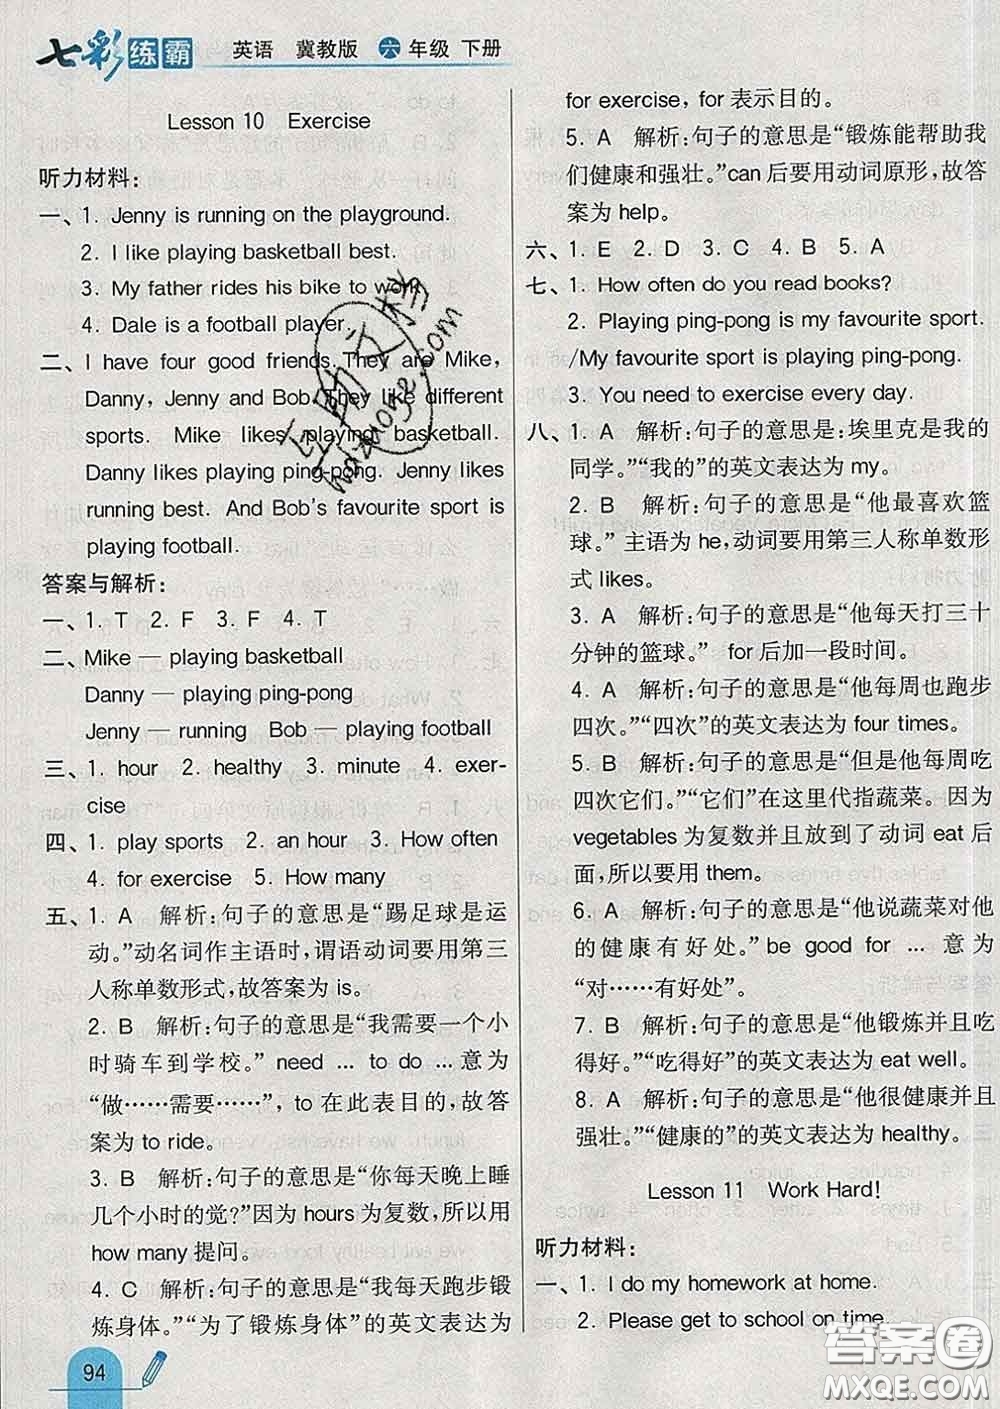 七彩练霸 英语 冀教版 六 年级 下册
Lesson 10 Exercise
听力材料:
一、1. Jenny is running on the playground.
2. I like playing basketball best.
3. My father rides his bike to work.
4. Dale is a football player.
二、I have four good friends. They are Mike,
Danny, Jenny and Bob. They like different
sports. Mike likes playing basketball.
Danny likes playing ping-pong. Jenny likes
running best. And Bob's favourite sport is
playing football.
答案与解析:
一、1. T 2. F 3. F 4. T
二、Mike — playing basketball
Danny — playing ping-pong
Jenny — running Bob — playing football
三、1. hour 2. healthy 3. minute 4. exer-
cise
四、1. play sports 2. an hour 3. How often
4. for exercise 5. How many
五、1. A 解析:句子的意思是“踢足球是运
动。”动名词作主语时,谓语动词要用第三
人称单数形式,故答案为 is。
2. B 解析:句子的意思是“我需要一个小
时骑车到学校。”need ... to do ...意为
“做……需要……”,to 在此表目的,故答
案为 to ride。
3. B 解析:句子的意思是“你每天晚上睡
几个小时的觉?”因为 hours 为复数,所以用
how many 提问。
4. C 解析:句子的意思是“我每天跑步锻
炼身体。”“为了锻炼身体”的英文表达为
94
for exercise, for 表示目的。
5. A 解析:句子的意思是“锻炼能帮助我
们健康和强壮。”can 后要用动词原形,故答
案为 help。
六、1. E 2. D 3. C 4. B 5. A
七、1. How often do you read books?
2. Playing ping-pong is my favourite sport.
/My favourite sport is playing ping-pong.
3. You need to exercise every day.
八、1. A 解析:句子的意思是:埃里克是我的
同学。”“我的”的英文表达为 my。
2. B 解析:句子的意思是“他最喜欢篮
球。”主语为 he,动词要用第三人称单数形
式 likes。
3. A 解析:句子的意思是“他每天打三十
分钟的篮球。” for 后加一段时间。
4. A 解析:句子的意思是“他每周也跑步
四次。”“四次”的英文表达为 four times。
5. B 解析:句子的意思是“但是他每周吃
四次它们。”“它们”在这里代指蔬菜。因为
vegetables 为复数并且放到了动词 eat 后
面,所以要用 them。
6. A 解析:句子的意思是“他说蔬菜对他
的健康有好处。”be good for ... 意为
“对……有好处”。
7. B 解析:句子的意思是“他锻炼并且吃
得好。”“吃得好”的英文表达为 eat well。
8. A 解析:句子的意思是“他很健康并且
强壮。”“健康的”的英文表达为 healthy。
Lesson 11 Work Hard!
听力材料:
一、1. I do my homework at home.
2. Please get to school on time.
答案圈
MXQE.COM